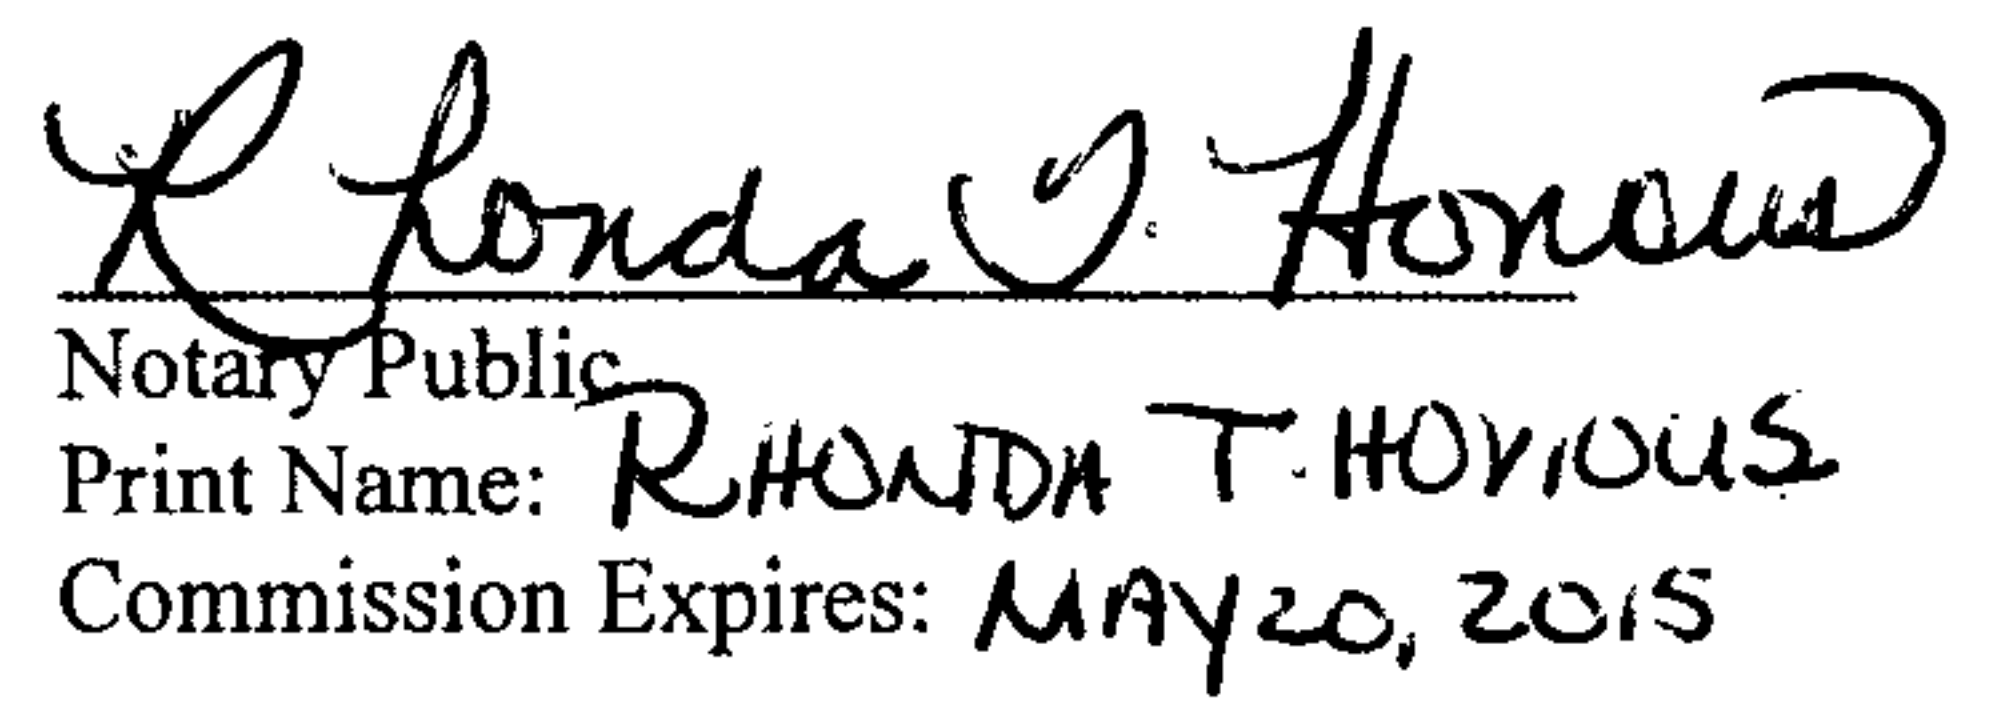 Rhonda T. Hovious
Notary Public
Print Name: RHONDA T. HOVIOUS
Commission Expires: MAY 20, 2015